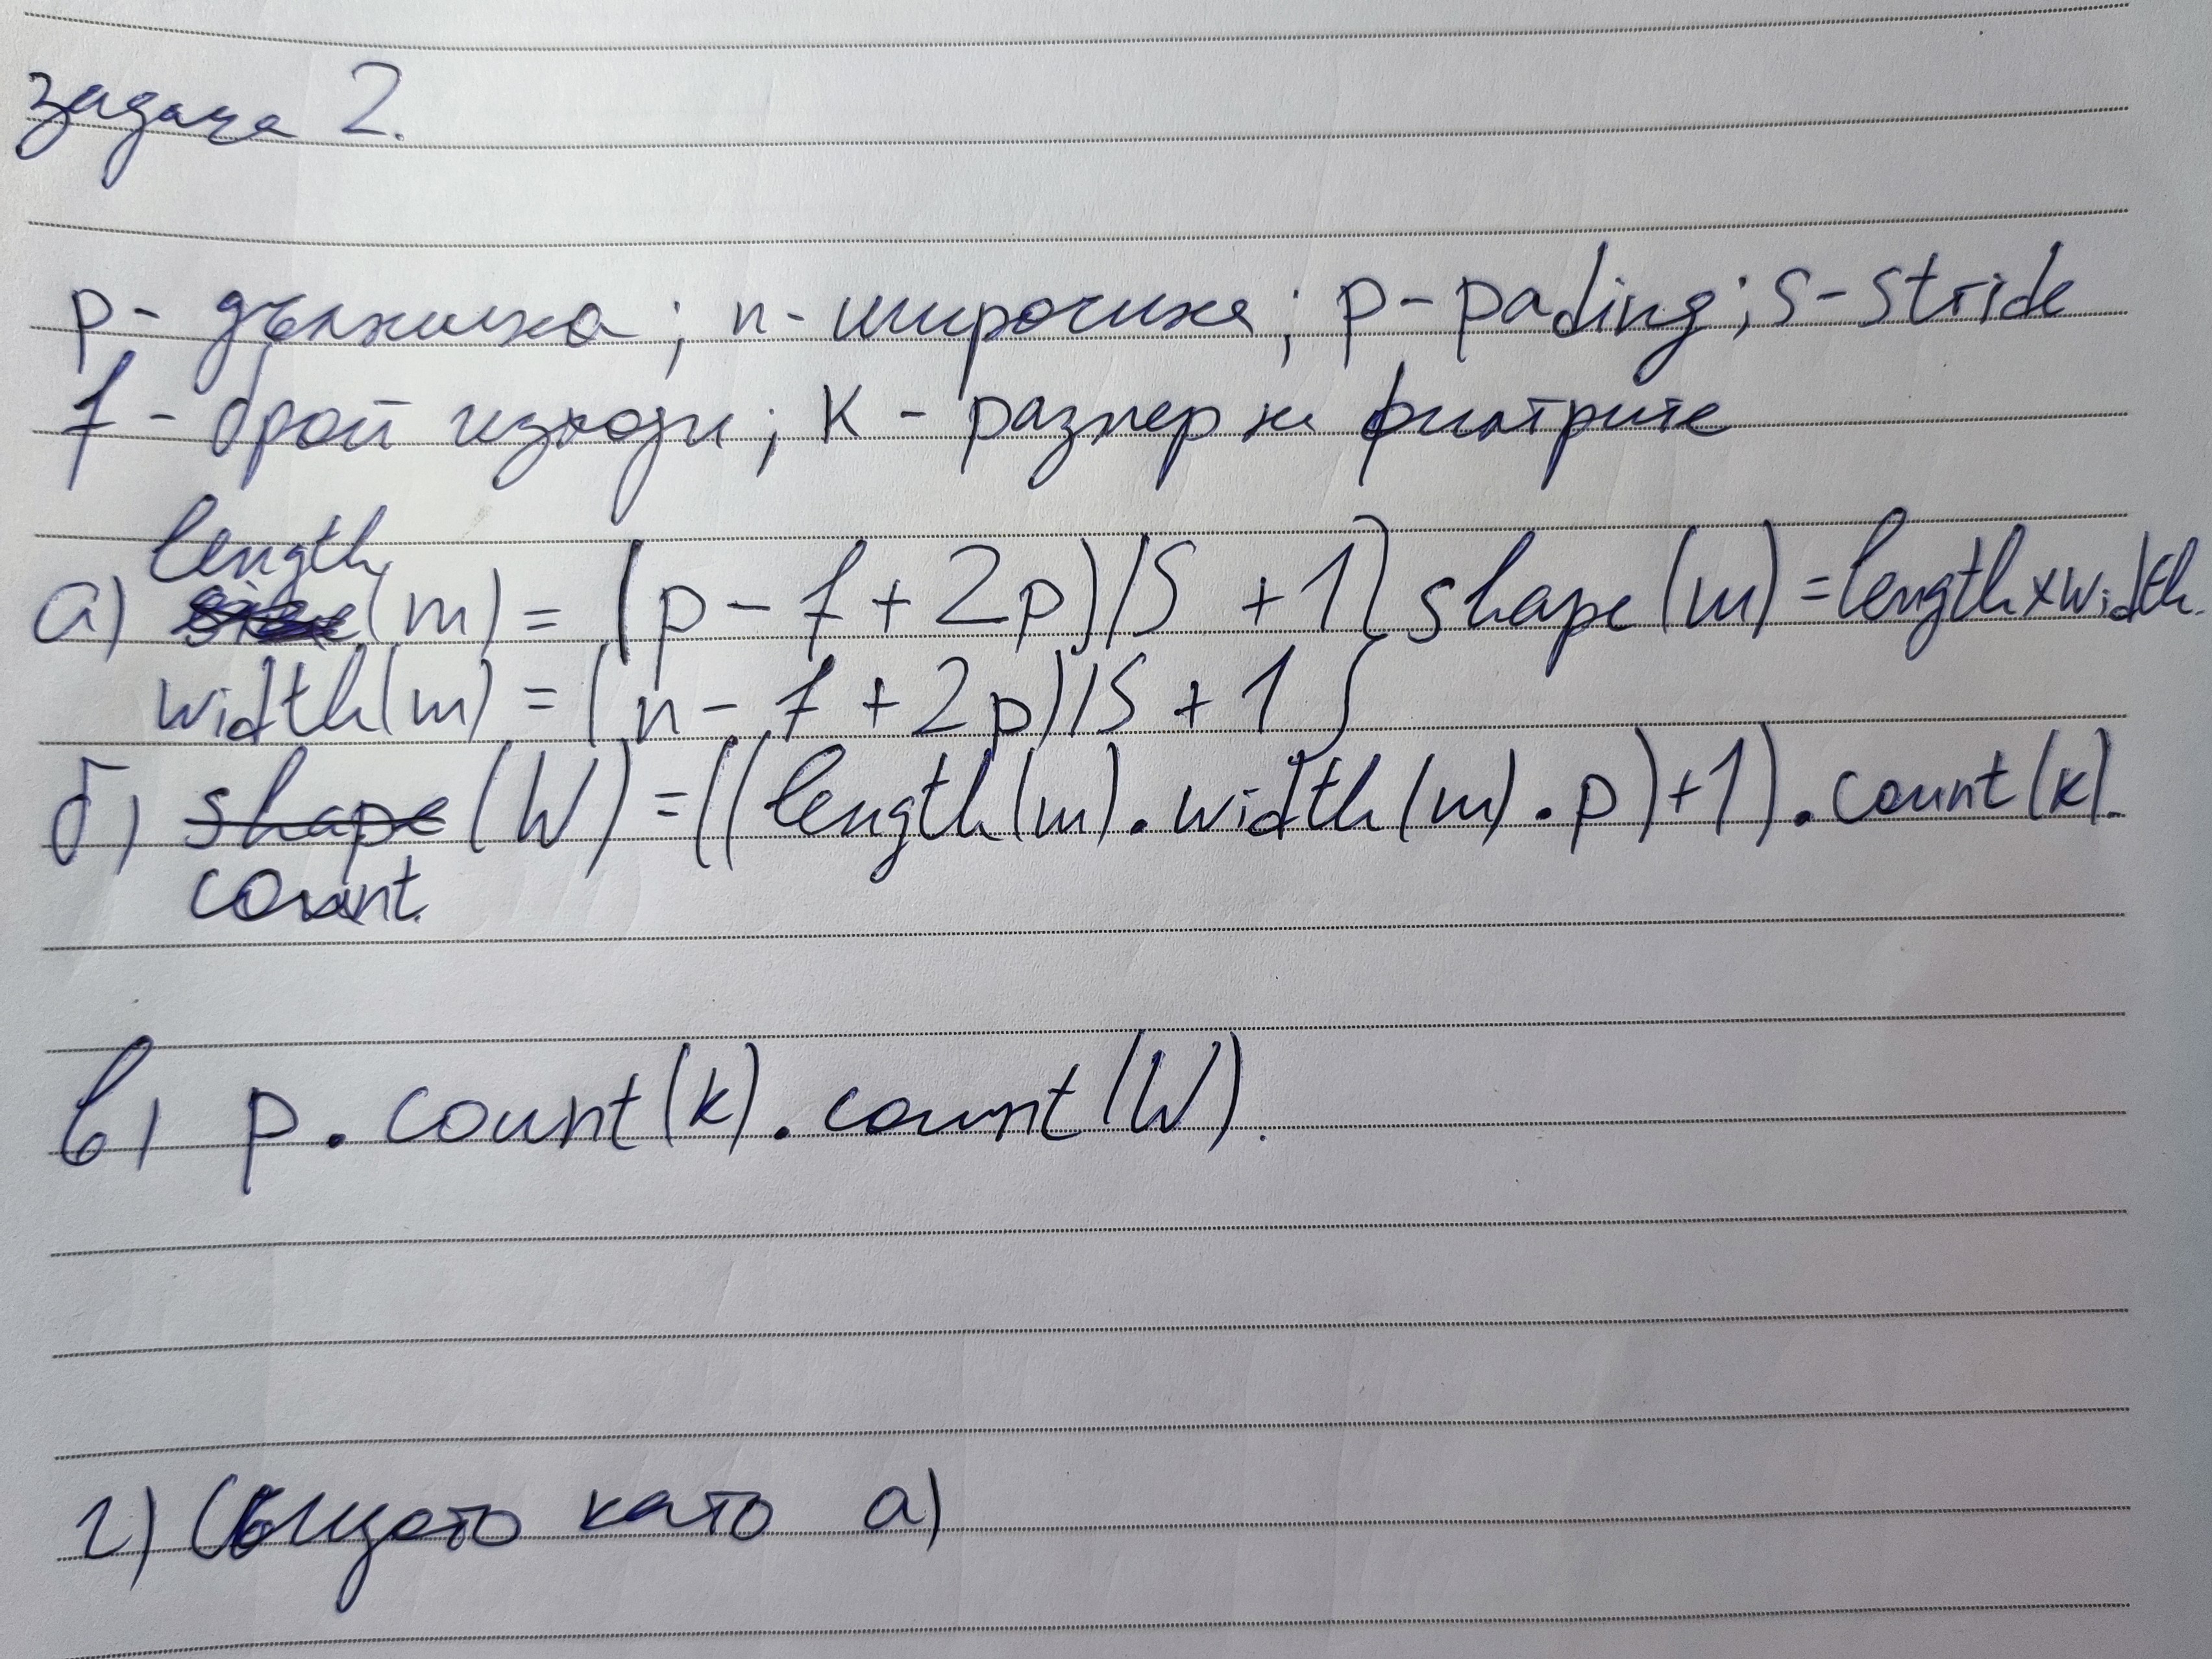 задача 2.
p - дължина; n - широчина; p - pading; s - stride
f - брой изходи; K - размер на филтрите
length
а) (m) = (p - f + 2p)/S + 1 } shape(m) = length x width.
width(m) = (n - f + 2p)/S + 1 }
б) shape (W) = ((length(m) . width(m) . p) + 1) . count(k).
count.
в) p . count(k) . count(W).
г) Същото като а)